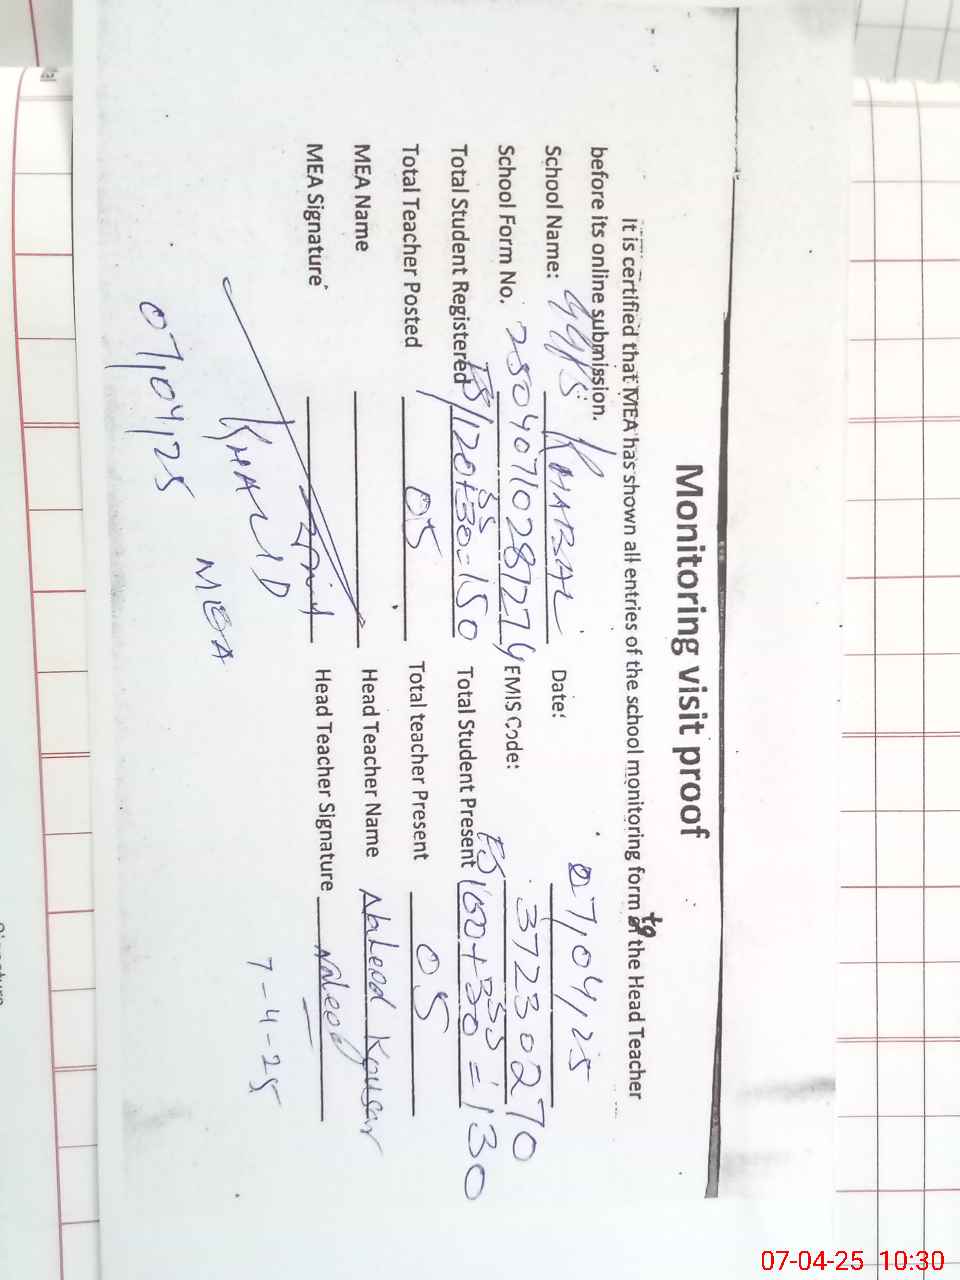 Monitoring visit proof
It is certified that MEA has shown all entries of the school monitoring form to the Head Teacher
before its online submission.
School Name: GGPS KHABAL Date: 07,04,25
School Form No. 25040710287274 EMIS Code: 37230270
Total Student Registered ES/120+30=150 SS Total Student Present ES 100+30=130 SS
Total Teacher Posted 05 Total teacher Present 05
MEA Name Head Teacher Name Naheed Kousar
MEA Signature Head Teacher Signature Naheed
KHALID
MEA
07,04,25
7-4-25
07-04-25 10:30